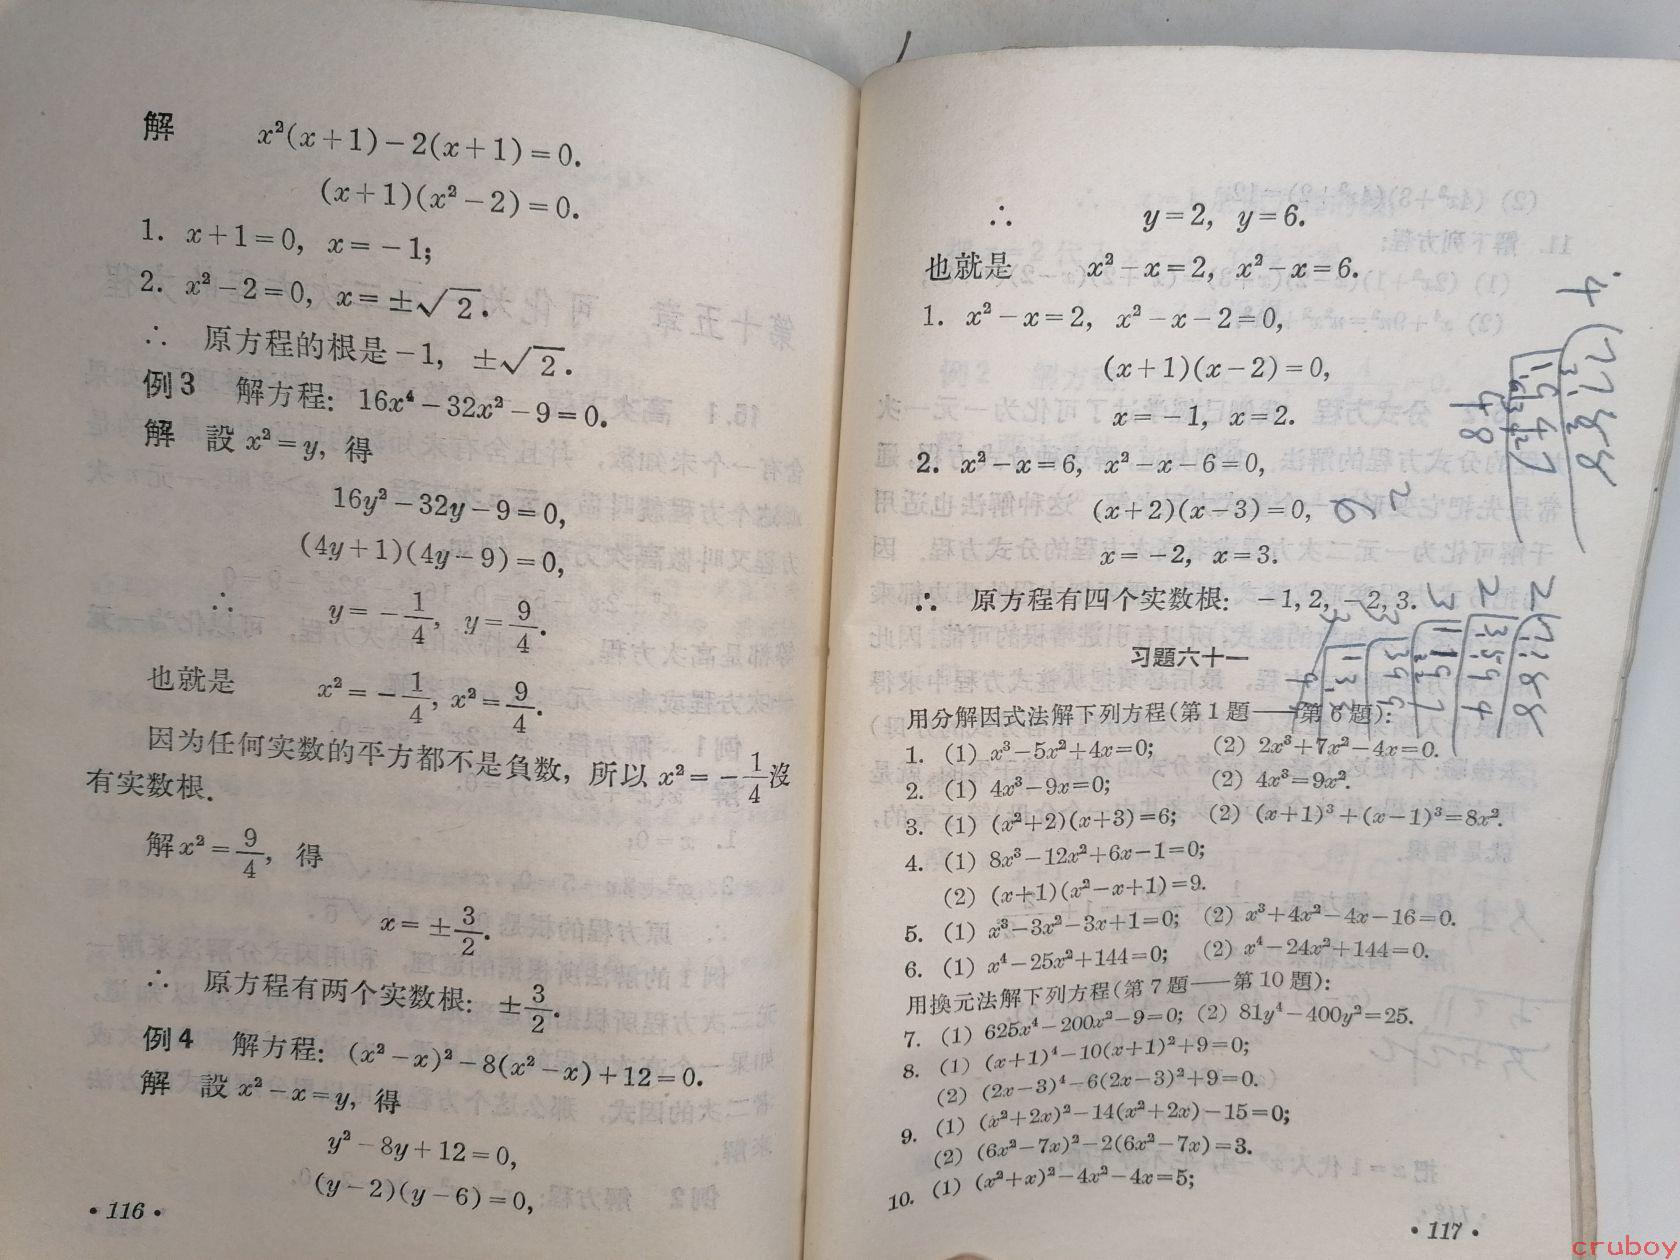 解 x²(x+1)-2(x+1)=0.
(x+1)(x²-2)=0.
1. x+1=0, x=-1;
2. x²-2=0, x=±√2.
∴ 原方程的根是-1, ±√2.
例3 解方程: 16x⁴-32x²-9=0.
解 設 x²=y, 得
16y²-32y-9=0,
(4y+1)(4y-9)=0,
∴ y=-1/4, y=9/4.
也就是 x²=-1/4, x²=9/4.
因为任何实数的平方都不是負数, 所以 x²=-1/4 沒
有实数根.
解 x²=9/4, 得
x=±3/2.
∴ 原方程有两个实数根: ±3/2.
例4 解方程: (x²-x)²-8(x²-x)+12=0.
解 設 x²-x=y, 得
y²-8y+12=0,
(y-2)(y-6)=0,
·116·
∴ y=2, y=6.
也就是 x²-x=2, x²-x=6.
1. x²-x=2, x²-x-2=0,
(x+1)(x-2)=0,
x=-1, x=2.
2. x²-x=6, x²-x-6=0,
(x+2)(x-3)=0,
x=-2, x=3.
∴ 原方程有四个实数根: -1, 2, -2, 3.
习題六十一
用分解因式法解下列方程(第1題——第6題):
1. (1) x³-5x²+4x=0; (2) 2x³+7x²-4x=0.
2. (1) 4x³-9x=0; (2) 4x³=9x².
3. (1) (x²+2)(x+3)=6; (2) (x+1)³+(x-1)³=8x².
4. (1) 8x³-12x²+6x-1=0;
(2) (x+1)(x²-x+1)=9.
5. (1) x³-3x²-3x+1=0; (2) x³+4x²-4x-16=0.
6. (1) x⁴-25x²+144=0; (2) x⁴-24x²+144=0.
用換元法解下列方程(第7題——第10題):
7. (1) 625x⁴-200x²-9=0; (2) 81y⁴-400y²=25.
8. (1) (x+1)⁴-10(x+1)²+9=0;
(2) (2x-3)⁴-6(2x-3)²+9=0.
9. (1) (x²+2x)²-14(x²+2x)-15=0;
(2) (6x²-7x)²-2(6x²-7x)=3.
10. (1) (x²+x)²-4x²-4x=5;
·117·
cruboy